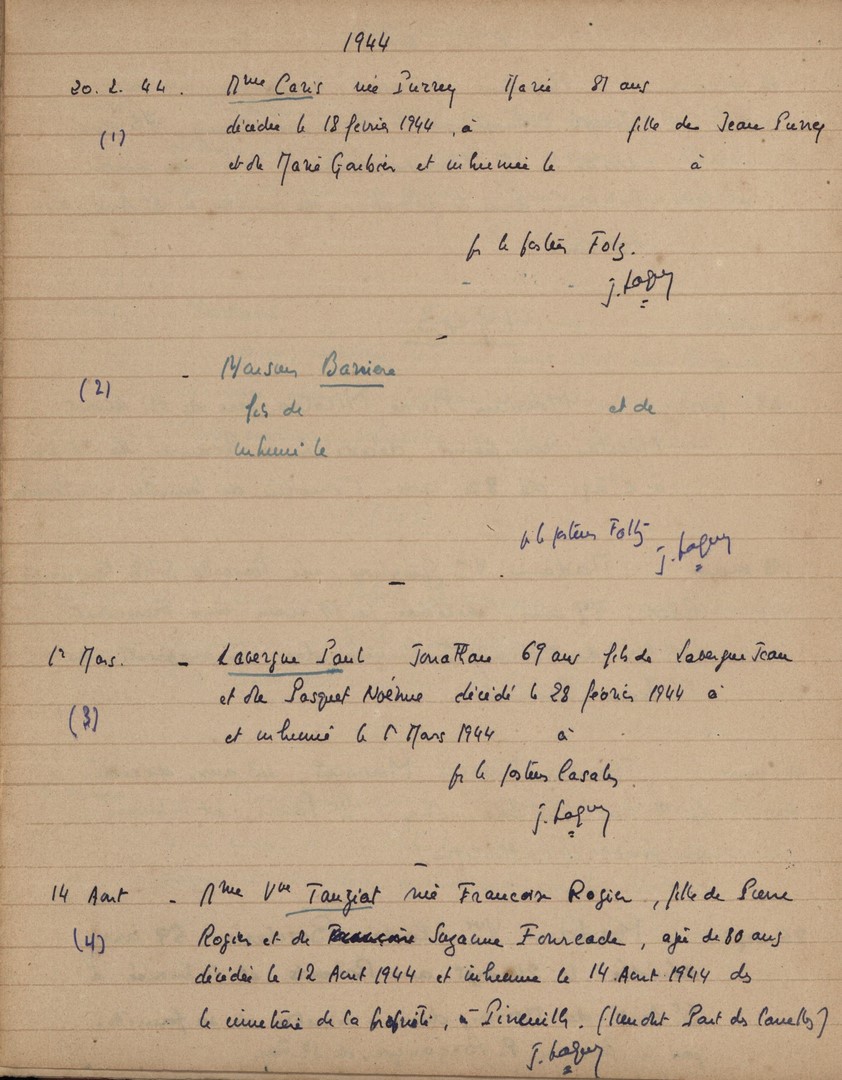 1944
20. 2. 44. Mme Caris née Purrey Marie 81 ans
(1) décédée le 18 février 1944, à fille de Jean Purrey
et de Marie et inhumée le à
pr le pasteur Foltz.
J. Laguy
(2) - Monsieur Barriere
fils de et de
inhumé le
pr le pasteur Foltz J. Laguy
1r Mars. - Lavergne Paul Jonathan 69 ans fils de Lavergne Jean
(3) et de Pasquet Noémie décédé le 28 février 1944 à
et inhumé le 1r Mars 1944 à
pr le pasteur Casalis
J. Laguy
14 Aout - Mme Vve Tauziat née Francoise Rogier, fille de Pierre
(4) Rogier et de Francoise Suzanne Fourcade, agée de 80 ans
décédée le 12 Aout 1944 et inhumée le 14 Aout 1944 ds
le cimetière de la propriété, à Pineuilh. (lieu dit)
J. Laguy